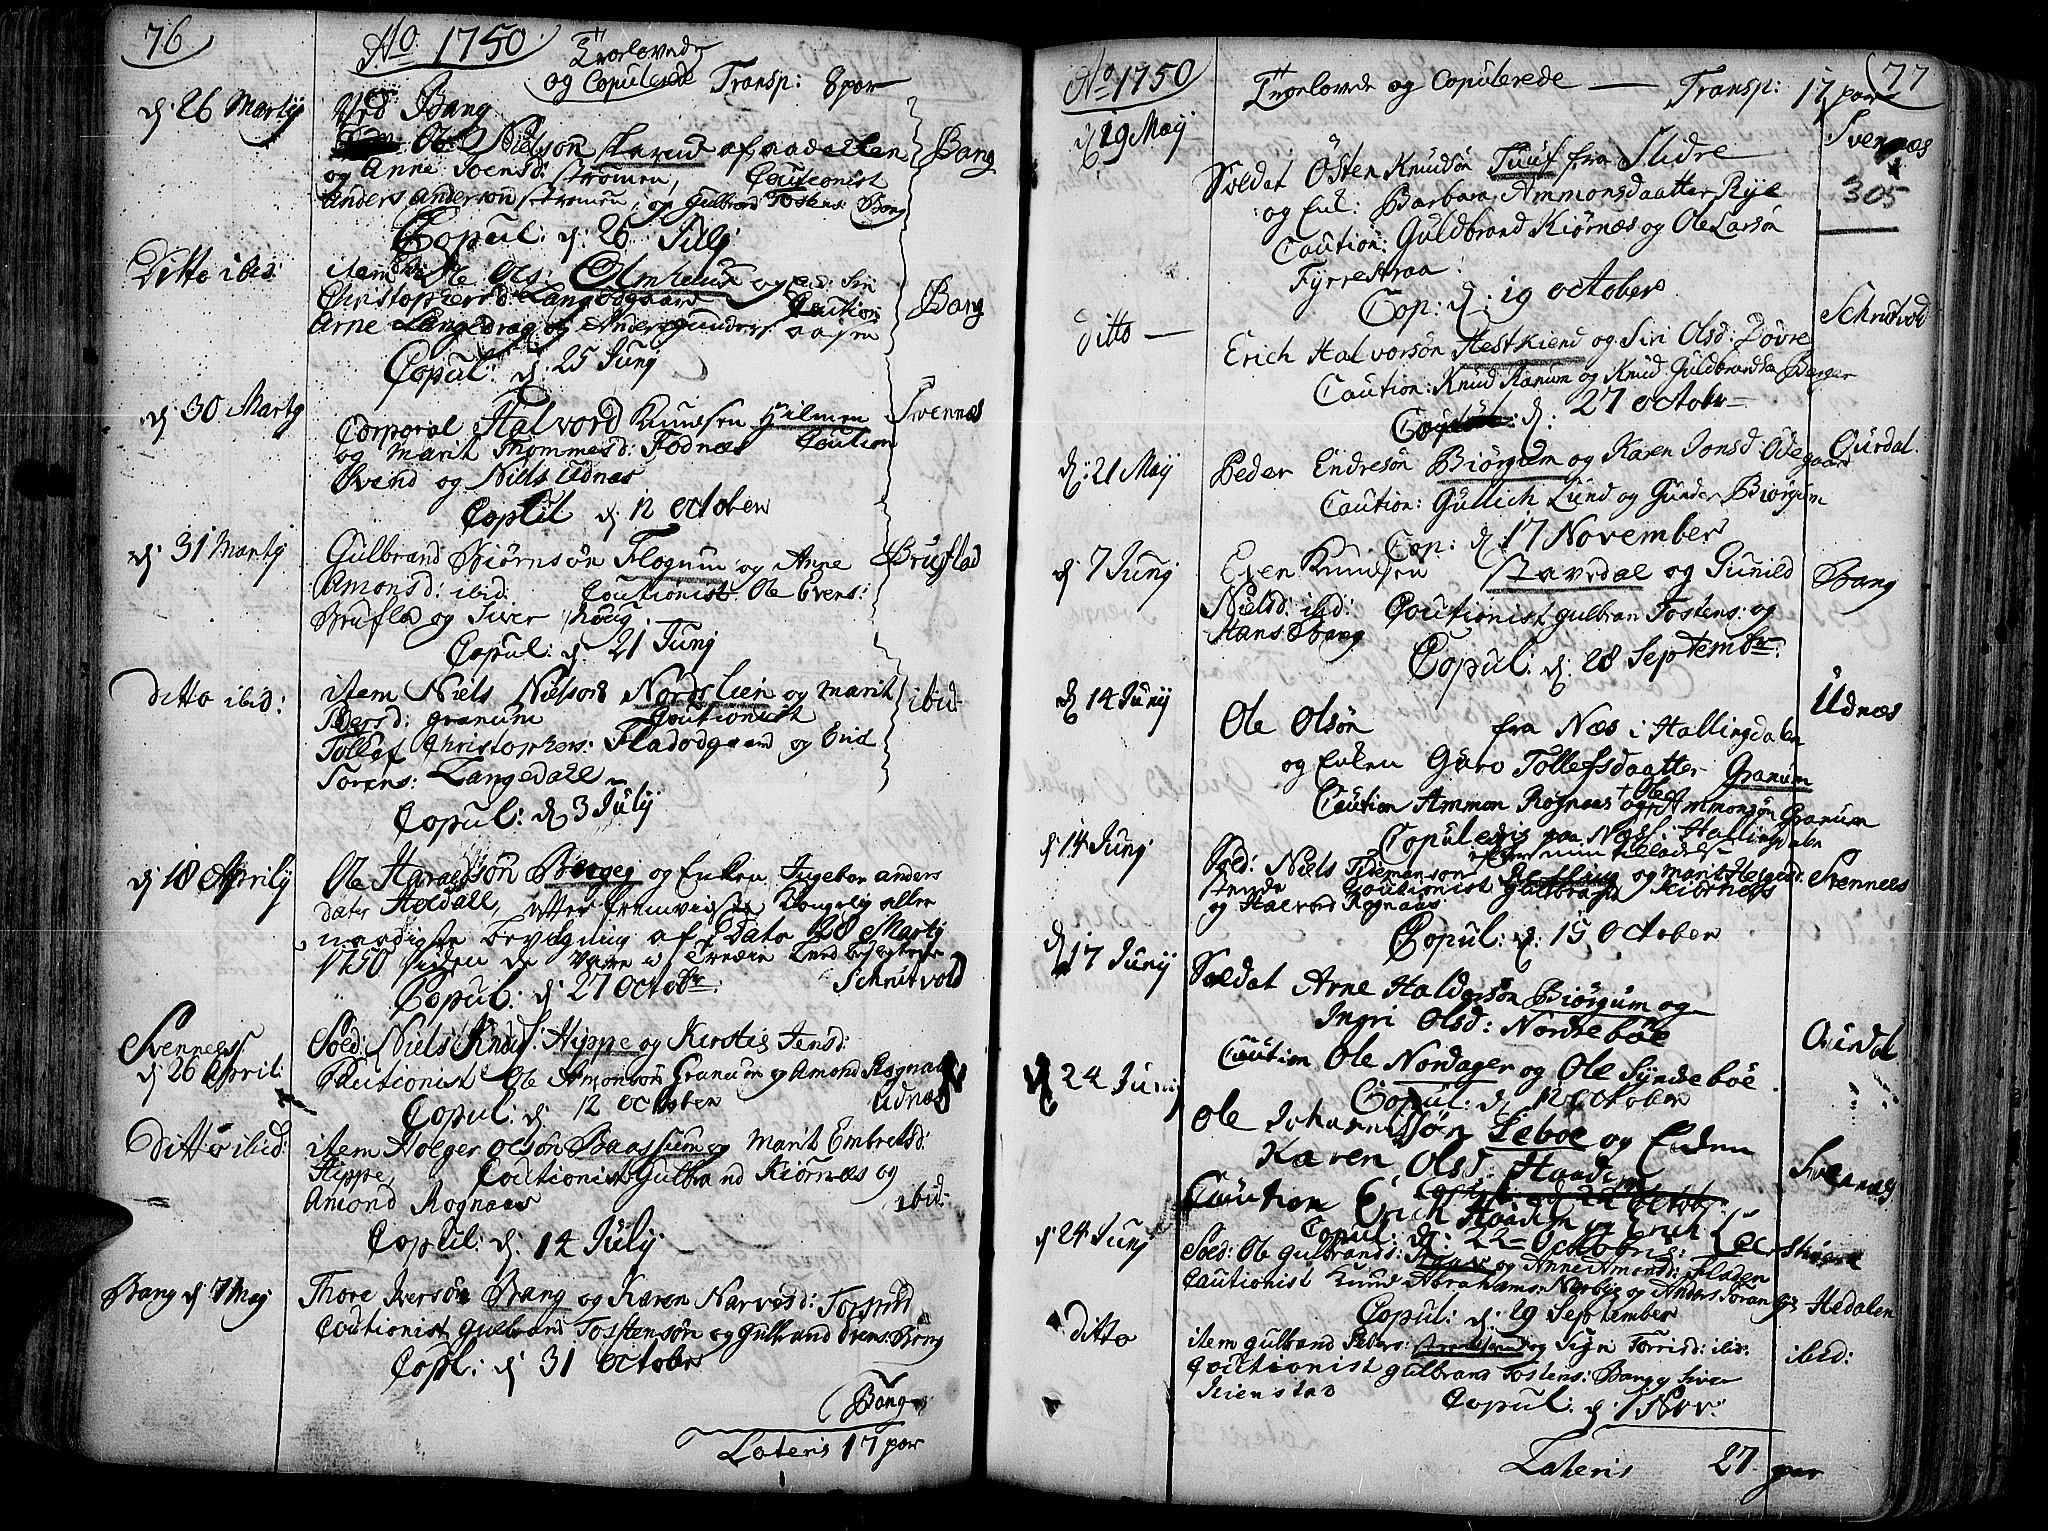 76
Ao 1750
Trolovede
og Copulerede Transp: 8 par
d. 26 Martij
Ved Bang
Ole Nielsøn af aadalen
Bang
og Anne Joensd: Strømen, Cautionist
Anders Andersøn Strømen, og Gulbrand Tostens: Bang
Copul: d: 26 Julij
Ditto ibid:
item Ole Ols: Olmhuus og Enk: Siri
Christophersd: Langodgaard Caution
Bang
Arne Langedrag og Anders Gunders: aasen
Copul: d: 25 Junj
d 30 Martij
Corporal Halvord Knudsen Hilmen
Svennæs
og Marit Thommesd: Fodnæs Caution
Svend og Niels Udnæs
Copul d. 12 October
d. 31 Martij
Gulbrand Biørnsøn Flogum og Anne
Bruflad
Amonsd: ibid: Coutionist Ole Evens:
Brufla og Siver Houg
Copul: d: 21 Junj
Ditto ibid:
item Niels Nielsøn Nordlien og Marit
ibid.
Iversd: Granum Coutionist
Tollef Christophers: Fladodgaard og Erid
Torens: Langedall
Copul: d. 3 Julij
d. 18 Aprilij
Ole Haraldsøn Bergej og Enken Ingebor anders
dater Heldall, efter fremviiste Kongelig aller
naadigste bevilgning af Dato 20 Martij
1750 siden de vare i Tredie Leed besvogrede
Copul: d: 27 Octobr:
Schrutvold
Svennes
d 26 April:
Sold: Niels Knuds: Hippe og Kirstie Jensd:
Cautionist Ole Amonsøn Granum og Amond Rognaas
Copul: d: 12 October
Udnæs
Ditto ibid:
item Holger Olsøn Baassum og Marit Embretsd:
Hippe, Coutionist Gulbrand Kiørnæs og
Amond Rognaas
ibid.
Copul: d: 14 Julij
Bang d 7 Maj
Thore Iversøn Bang og Karen Narvesd: Torsrud
Coutionist Gulbrand Tostensøn og Gulbrand Ivers: Bang
Copl: d. 31 October
Bang
Lateris 17 par
77
Ao 1750
Trolovede og Copulerede — Transp: 17 par
d 19 Maij
Svennæs
Soldat Østen Knudsøn Tuuf fra Slidre
305
og Enk: Barbara Ammonsdaatter Rye
Caution: Guldbrand Kiørnæs og Ole Larsøn
Fyrrestraa
Cop: d: 19 October
ditto —
Schrutvold
Erich Halvorsøn Hestkiend og Siri Olsd: Dovre
Caution: Knud Ranum og Knud Guldbrandsøn Berger
Copul: d: 27 Octobr
d: 21 Maij
Peder Endresøn Biørgum og Karen Jonsd: Ødegaard
Ourdal.
Caution: Gullich Lund og Gunder Biørgum
Cop: d: 17 November
d 7 Junj
Even Knudsen Stavedal og Gunild
Bang
Nielsd: ibid: Coutionist Gulbran Tostens: og
Hans Bang
Copul: d: 28 Septembr:
d 14 Junij
Ole Olsøn fra Næs i Hallingdalen
Udnæs
og Enken Guro Tollefsdaatter Granum
Caution Ammon Rognaas og Ole Ammonsøn Granum
Copuleris paa Næss i Hallingdalen
efter min tilladelse
d 14 Junj
Sold: Niels Tidemansøn og Marit Helgesd:
Svennes
Coutionist Gulbrand Kiørnes
og Halvord Rognaas
Copul: d: 15 October
d 17 Junij
Soldat Arne Haldorsøn Biørgum og
Ingri Olsd: Nordrebøe
Ourdal
Caution Ole Nordager og Ole Syndebøe
Copul: d: 12 October
24 Junij
Ole Johannessøn Leboe og Enken
Karen Olsd: Haadem
Svennæs
Caution Erich Haadem og Erich Leer
Copul: d: 22 Octobris:
d 24 Junj
Sold: Ole Gulbrands: og Anne Amonsd: Fladen
Cautionist Knud Abrahams: Nørbye og Anders Toran
Hedalen
Copul: d: 29 September
ditto
item Gulbrand Peders: og Sign Torrisd: ibid:
ibid:
Coutionist Gulbrand Tostens: Bang og Siver
Kienstad
Copul: d. 1 Nov:
Lateris 27 par